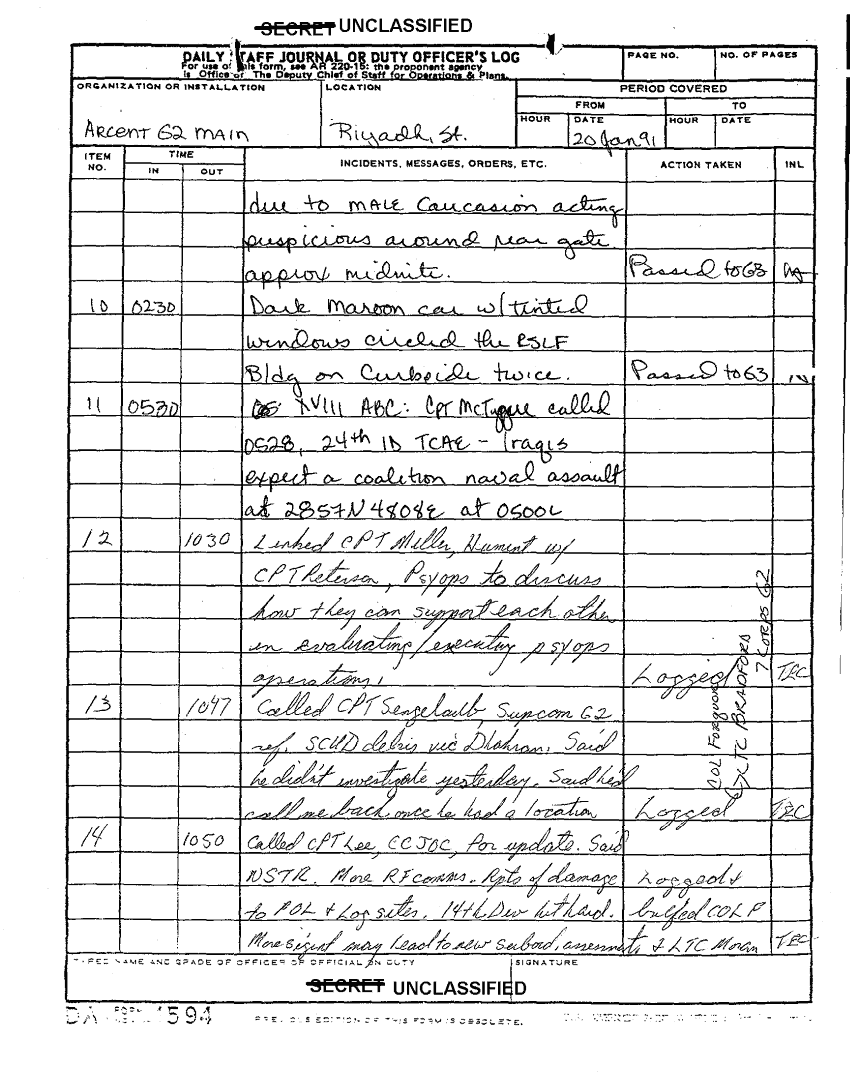 SECRET UNCLASSIFIED
DAILY STAFF JOURNAL OR DUTY OFFICER'S LOG
For use of this form, see AR 220-15: the proponent agency
is Office of The Deputy Chief of Staff for Operations & Plans.
PAGE NO.
NO. OF PAGES
ORGANIZATION OR INSTALLATION
ARCENT G2 MAIN
LOCATION
Riyadh, St.
PERIOD COVERED
FROM
TO
HOUR DATE HOUR DATE
20 Jan 91
ITEM NO.
TIME
IN OUT
INCIDENTS, MESSAGES, ORDERS, ETC.
ACTION TAKEN
INL
due to MALE Caucasion acting
suspicious around rear gate
approx midnite. Passed to G3
10 0230 Dark Maroon car w/tinted
windows circled the RSLF
Bldg on Curbside twice. Passed to G3
11 0530 XVIII ABC: CPT McTugue called
0528, 24th ID TCAE - Iraqis
expect a coalition naval assault
at 2857N 4808E at 0500L
12 1030 Linked CPT Miller, Humint w/
CPT Peterson, Psyops to discuss
how they can support each other
in evaluating/executing psyops
operations. Logged TEC
13 1047 Called CPT Sengelaub, Supcom G2
ref. SCUD debris vic Dhahran. Said
he didn't investigate yesterday. Said he'd
call me back once he had a location Logged TEC
COL Forquor
LTC BRADFORD
7 CORPS G2
14 1050 Called CPT Lee, CCJOC, for update. Said
NSTR. More RF comms. Rpts of damage Logged &
to POL & Log sites. 14th Div hit hard. briefed COL P
More sigint may lead to new subord. assessments & LTC Moran TEC
TYPED NAME AND GRADE OF OFFICER OR OFFICIAL ON DUTY
SIGNATURE
SECRET UNCLASSIFIED
DA FORM 1594
PREVIOUS EDITION OF THIS FORM IS OBSOLETE.